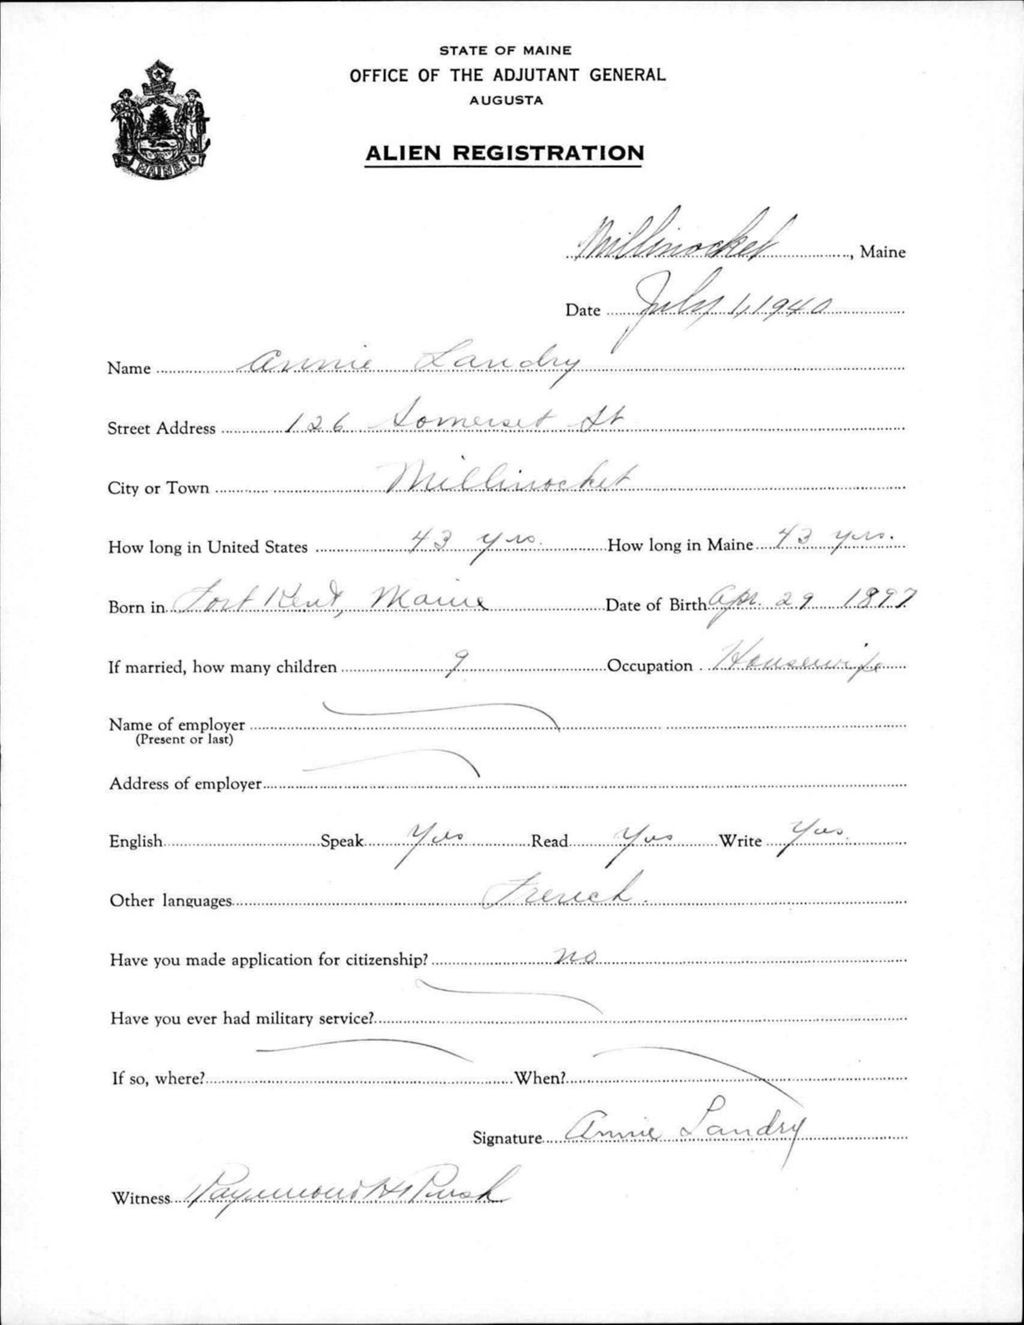 STATE OF MAINE
OFFICE OF THE ADJUTANT GENERAL
AUGUSTA
ALIEN REGISTRATION
MAINE
Millinocket, Maine
Date July 1, 1940
Name Annie Landry
Street Address 126 Somerset St
City or Town Millinocket
How long in United States 43 yrs. How long in Maine 43 yrs.
Born in Fort Kent, Maine Date of Birth Apr. 29 1897
If married, how many children 9 Occupation Housewife
Name of employer
(Present or last)
Address of employer
English Speak Yes Read Yes Write Yes
Other languages French.
Have you made application for citizenship? no
Have you ever had military service?
If so, where? When?
Signature Annie Landry
Witness Raymond H